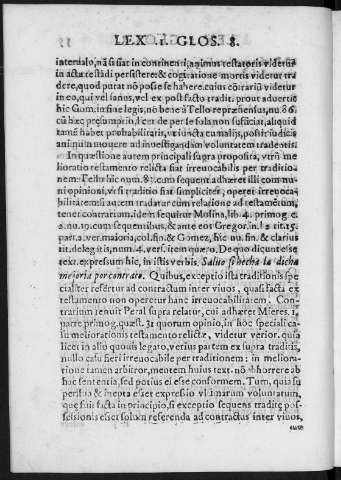 LEX .I. GLOS. 8.
interualo, nã si fiat in continenti, animus testatoris videtur
in actu testãdi persistere: & cogitatione mortis videtur tra
dere, quod putat nõ posse se habere. cuius cõtrariũ videtur
in eo, qui vel sanus, vel ex post facto tradit. prout aduertit
hic Gom. in fine legis, nõ bene à Tello repræhensus, nu. 86.
cũ hæc præsumptio, licet de per se sola non sufficiat, aliquid
tamẽ habet probabilitatis, vt iuncta cum alijs, possit iudicis
animũ mouere ad inuestigãdam voluntatem tradentis.
In quæstione autem principali supra proposita, vtrũ me
lioratio testamento relicta fiat irreuocabilis per traditio-
nem: Tello hic num. 87. cum sequent. adhæret illi commu
ni opinioni, vt si traditio fiat simpliciter, operet irreuoca-
bilitatem: si autem tradatur cum relatione ad testamẽtum,
tenet contrarium. idem sequitur Molina, lib. 4. primog. c.
2. nu. 19. cum sequentibus, & ante eos Gregor. in l. 1. tit. 15.
part. 2. ver. maioria, col. fin. & Gomez, hic nu. fin. & clarius
tit. delegatis, num. 4. vers. item quæro. De quo dicunt esse
text. expressum hic, in istis verbis. Saluo si hecha la dicha
mejoria por contrato. Quibus, exceptio ista traditionis spe
cialiter refertur ad contractum inter viuos, quasi facta ex
testamento non operetur hanc irreuocabilitatem. Con-
trarium tenuit Peral supra relatur, cui adhæret Mieres. 1.
parte primog. quæst. 31 quorum opinio, in hoc speciali ca-
su meliorationis testamento relictæ, videtur verior. quia
licet in alio quouis legato, verius partem ex supra traditis,
nullo casu fieri irreuocabile per traditionem: in meliora-
tione tamen arbitror, mentem huius text. nõ abhorrere ab
hoc sententia, sed potius ei esse conformem. Tum, quia su
perflua & inepta esset expressio vltimarum voluntatum,
quę fuit facta in principio, si exceptio sequens traditę pos-
sessionis esset solum referenda ad contractus inter viuos,